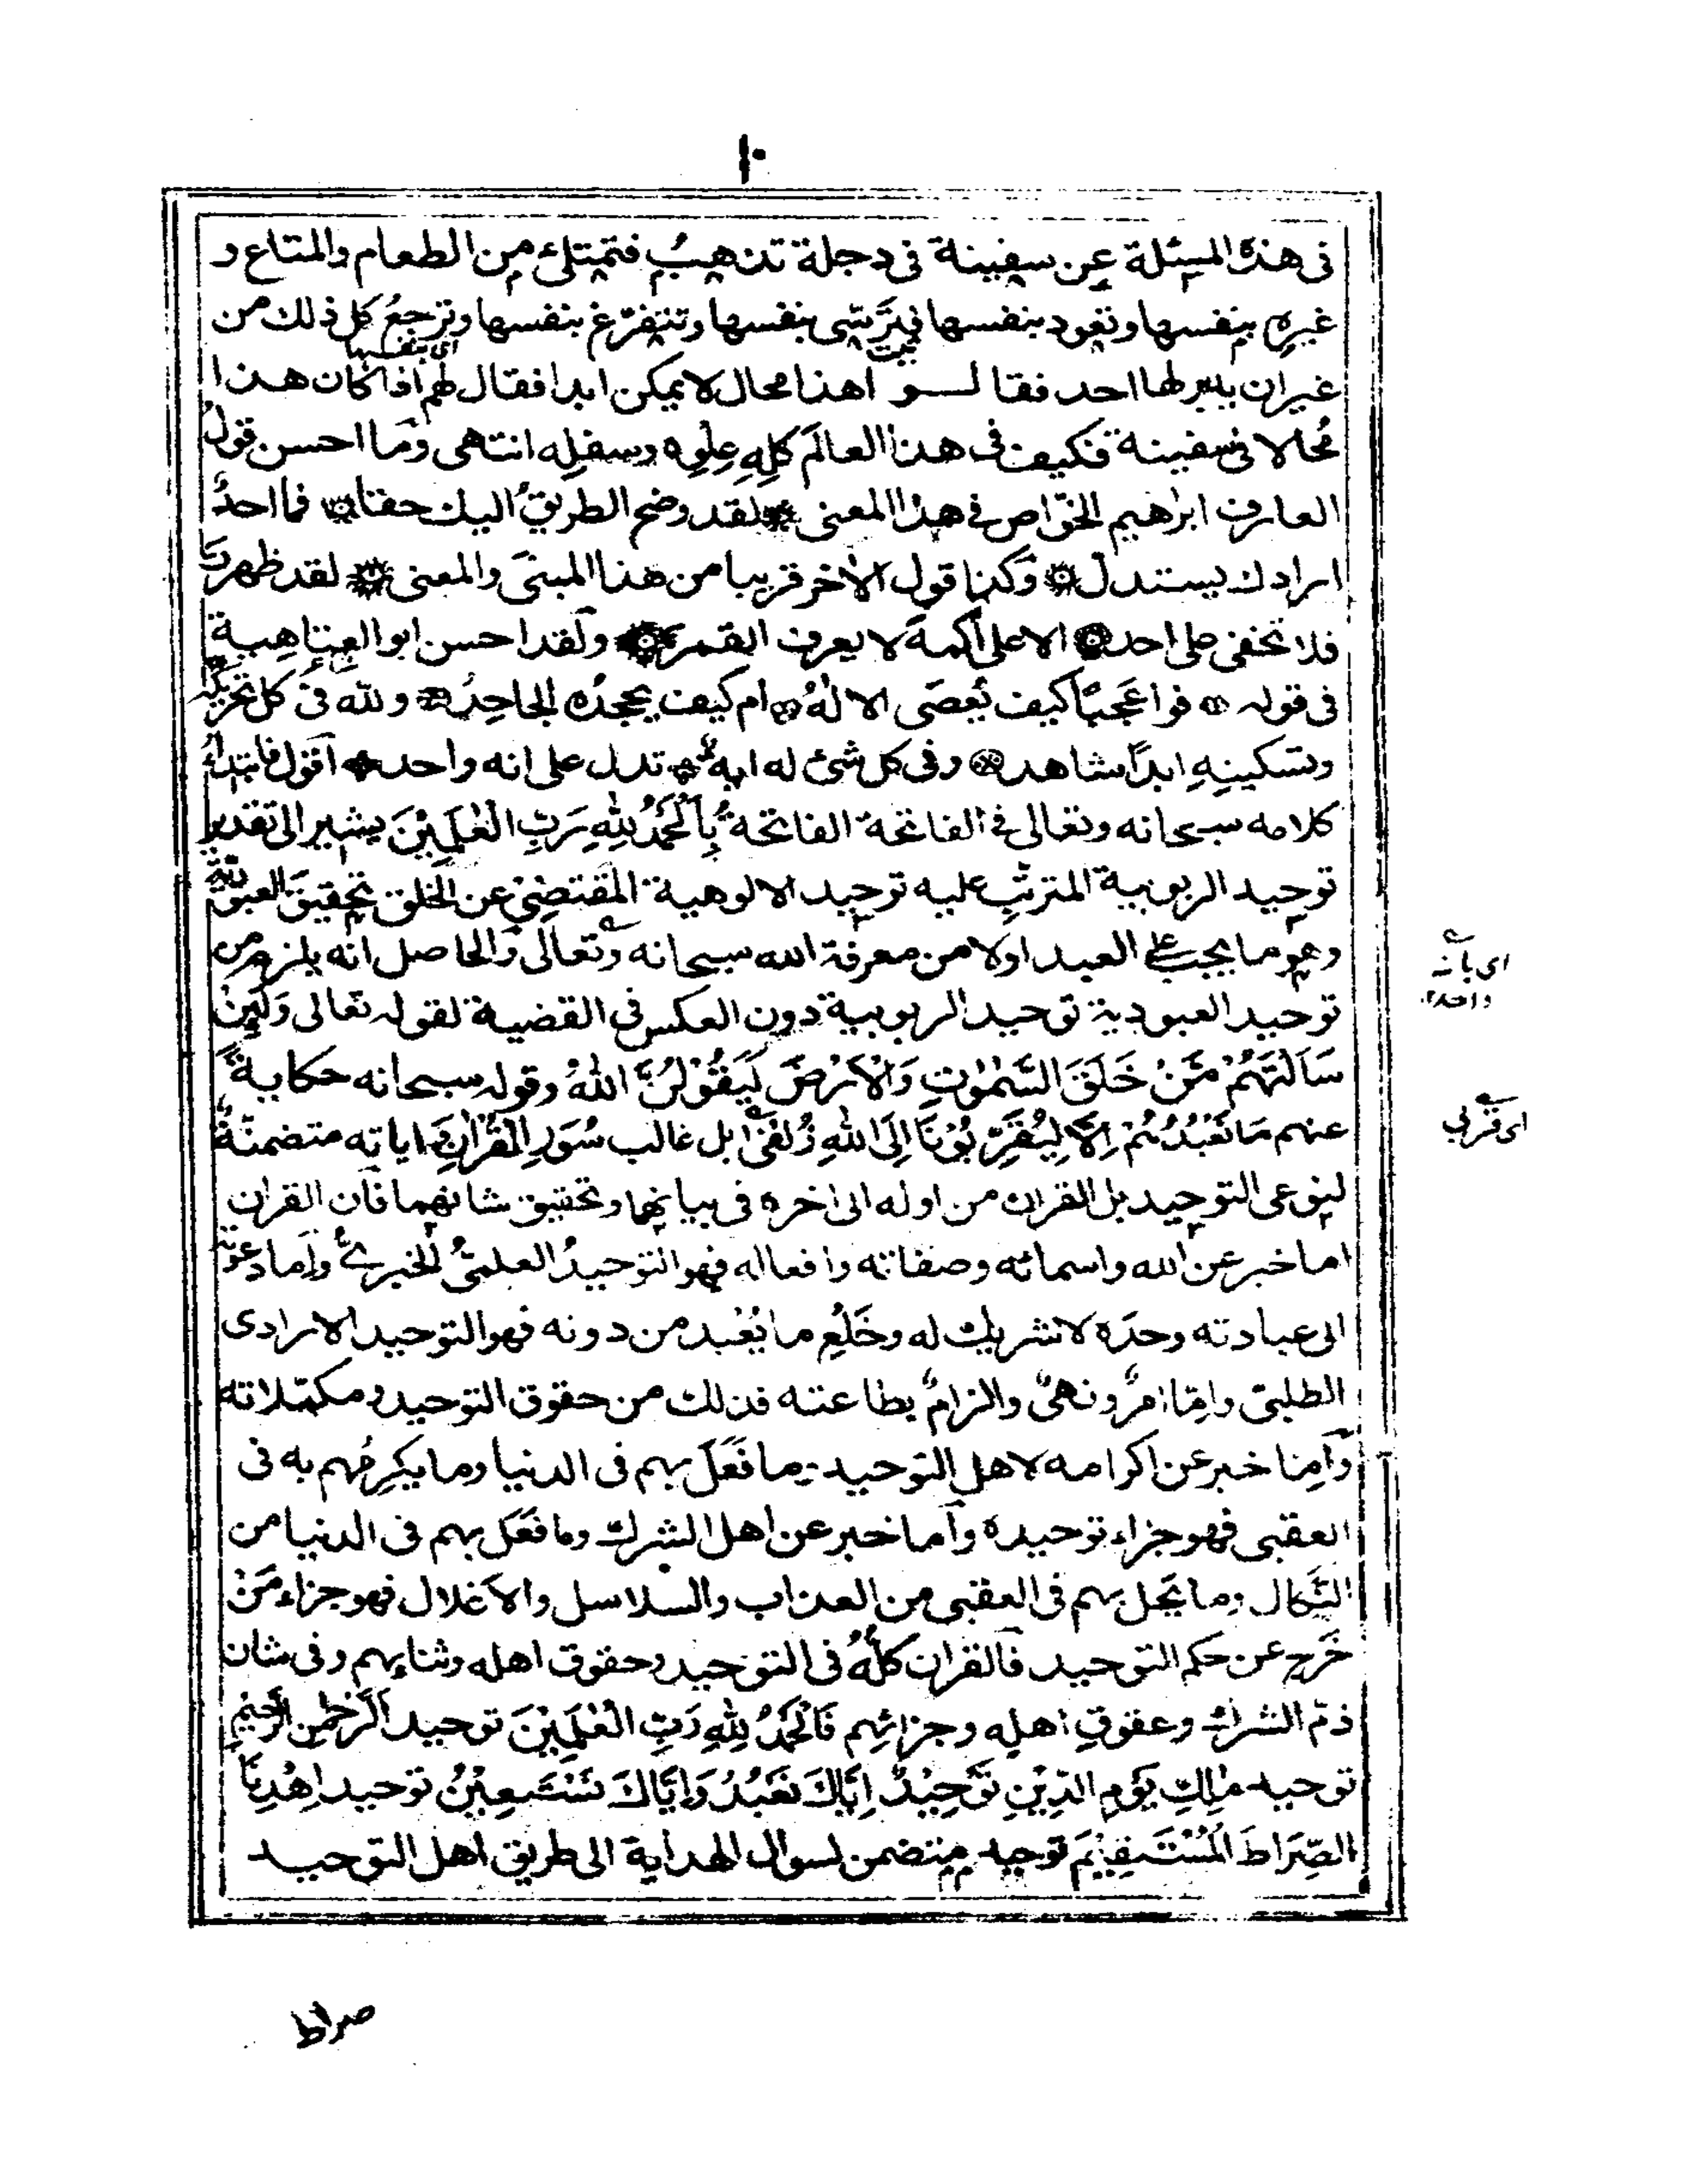 ١٠
فى هذه المسئلة عن سفينة فى دجلة تذهب فتمتلئ من الطعام والمتاع و
غيره بنفسها وتعود بنفسها فترسى بنفسها وتتفرّغ بنفسها وترجعُ كل ذلك من
اى بنفسها
غيران يدبرها احد فقالوا هذا محال لا يمكن ابدا فقال لهم اذا كان هذا
مُحالا فى سفينة فكيف فى هذا العالَم كلِهِ عِلْوِه وسفلِه انتهى وما احسن قولُ
العارف ابرٰهيم الخوّاص فى هذا المعنى لقد وضح الطريقُ اليك حقتا فما احدٌ
ارادك يستدل وكذا قول الأخر قريبا من هذا المبنى والمعنى لقد ظهرتَ
فلا تخفى على احد الا على أكمهَ لا يعرف القمر ولقد احسن ابو العتاهية
فى قوله فواعَجَبًا كيف يُعصَى الا لٰهُ ام كيف يجحدُه الجاحِدُ ولله فى كل تحريكة
وتسكينهِ ابداً شاهد وفى كل شئ له اية تدل على انه واحد اقول فابتداءُ
كلامه سبحانه وتعالى فى الفاتحة الفاتحة بِالْحَمْدُ لِلّٰهِ رَبِّ الْعٰلَمِيْنَ يشير الى تقدير
توحيد الربوبية المترتبِ عليه توحيد الالوهية المقتضِىْ عن الخلق تحقيقَ العبوديّة
وهو ما يجب على العبد اولا من معرفة الله سبحانه وتعالى والحاصل انه يلزم من
اى بانه
واحد
توحيد العبودية توحيد الربوبية دون العكس فى القضية لقوله تعالى وَلَئِنْ
سَاَلْتَهُمْ مَّنْ خَلَقَ السَّمٰوٰتِ وَالْاَرْضَ لَيَقُوْلُنَّ اللّٰهُ وقوله سبحانه حكايةً
عنهم مَا نَعْبُدُهُمْ اِلَّا لِيُقَرِّبُوْنَا اِلَى اللّٰهِ زُلْفٰى بل غالب سُوَرِ القُرْاٰنِ واياته متضمنةٌ
اى قربي
لنوعى التوحيد بل القران من اوله الى اخره فى بيانهما وتحقيق شانهما فان القران
اما خبر عن الله واسمائه وصفاته وافعاله فهو التوحيدُ العلمىُّ الخبرىُّ واما دعوته
الى عبادته وحدَه لا شريك له وخَلْعِ ما يُعْبد من دونه فهو التوحيد الارادى
الطلبىّ وامّا امرٌ ونهىٌ والزامٌ بطاعته فذلك من حقوق التوحيد ومكمّلاته
وأما خبر عن اكرامه لاهل التوحيد وما فَعَلَ بهم فى الدنيا وما يكرِمُهم به فى
العقبى فهو جزاء توحيده وأما خبر عن اهل الشرك وما فعَل بهم فى الدنيا من
النَّكال وما يَحل بهم فى العقبى من العذاب والسلاسل والاغلال فهو جزاء مَنْ
خَرج عن حكم التوحيد فالقران كلُّهُ فى التوحيد وحقوق اهله وثنائهم وفى شان
ذمّ الشرك وعقوقِ اهلِه وجزائهم فَالْحَمْدُ لِلّٰهِ رَبِّ الْعٰلَمِيْنَ توحيد اَلرَّحْمٰنِ الرَّحِيْمِ
توحيد مٰلِكِ يَوْمِ الدِّيْنِ تَوْحِيْدٌ اِيَّاكَ نَعْبُدُ وَاِيَّاكَ نَسْتَعِيْنُ توحيد اِهْدِنَا
الصِّرَاطَ الْمُسْتَقِيْمَ توحيد متضمن لسوال الهداية الى طريق اهل التوحيد
صراط